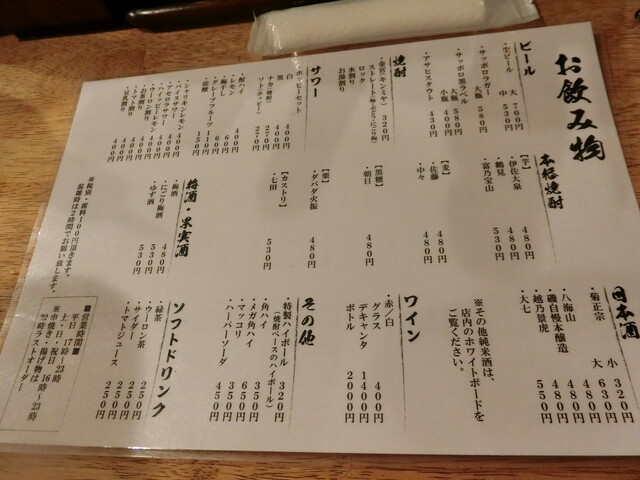 お飲み物
ビール
・生ビール 大 700円
中 530円
・サッポロラガー
大瓶 580円
・サッポロ黒ラベル
大瓶 580円
小瓶 400円
・アサヒスタウト
430円
焼酎
・金宮(キンミヤ) 320円
ストレート(梅・ぶどう・にごり梅)
ロック
水割り
お湯割り
サワー
・ホッピーセット
白 400円
黒 400円
ナカ(焼酎) 270円
ソト(ホッピー) 270円
・酎ハイ
・レモン 400円
・梅干し 60円
・グレープフルーツ 110円
・炭酸 150円
・シャリキンレモン 400円
・バイスサワー 400円
・アセロラサワー 400円
・ハイッピーレモン 400円
・ウーロン割り 400円
・お茶割り 400円
・トマト割り 400円
・豆乳割り 400円
本格焼酎
【芋】
・伊佐大泉 480円
・鶴見 480円
・富乃宝山 530円
【麦】
・佐藤 480円
・中々 480円
【黒糖】
・朝日 480円
【栗】
・ダバダ火振 480円
【カストリ】
・七田 530円
梅酒・果実酒
・梅酒 480円
・にごり梅酒 530円
・ゆず酒 530円
※税別・席料100円頂きます。
混雑時は2時間でお願い致します。
日本酒
・菊正宗 小 320円
大 630円
・八海山 480円
・磯自慢本醸造 480円
・越乃景虎 480円
・大七 530円
※その他純米酒は、
店内のホワイトボードを
ご覧ください。
ワイン
・赤/白
グラス 400円
デキャンタ 1400円
ボトル 2000円
その他
・特製ハイボール 320円
(焼酎ベースのハイボール)
・角ハイ 350円
・メガ角ハイ 650円
・マッコリ 350円
・ハーパーソーダ 450円
ソフトドリンク
・緑茶 250円
・ウーロン茶 250円
・サイダー 250円
・トマトジュース 250円
■営業時間■
平日 17時〜23時
土・日・祝日 16時〜23時
※串焼き・揚げ物は
22時ラストオーダー